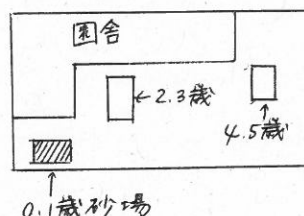 園舎
←2.3歳
4.5歳
0.1歳砂場